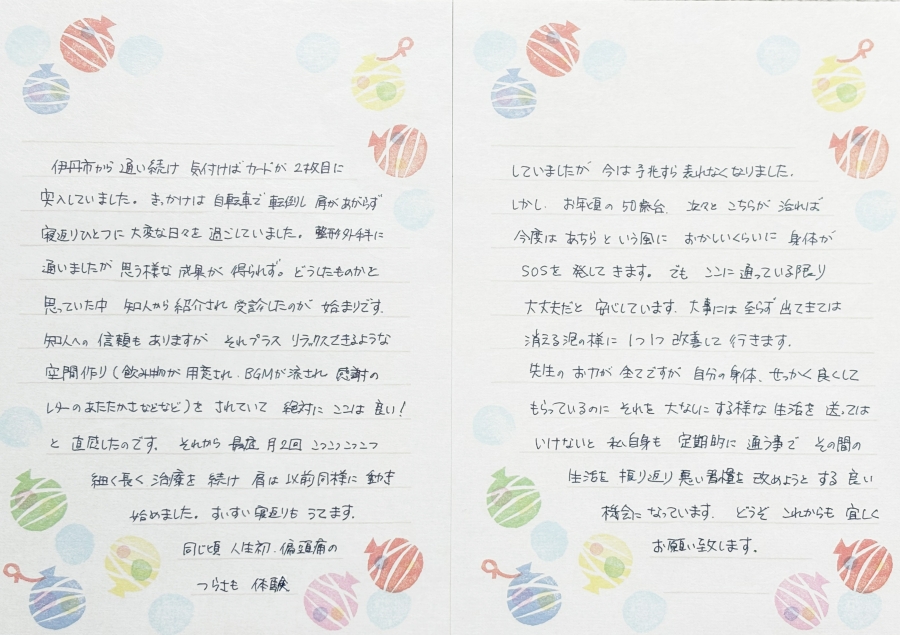 伊丹市から通い続け 気付けばカードが2枚目に
突入していました。きっかけは 自転車で転倒し 肩があがらず
寝返りひとつに 大変な日々を過ごしていました。整形外科に
通いましたが 思う様な成果が得られず。どうしたものかと
思っていた中 知人から紹介され 受診したのが 始まりです。
知人への信頼もありますが それプラス リラックスできるような
空間作り(飲み物が用意され、BGMが流され 感謝の
レターのあたたかさなどなど)を されていて 絶対に ここは良い!
と 直感したのです。それから 最低 月2回 コツコツコツコツ
細く長く 治療を 続け 肩は以前同様に 動き
始めました。すいすい寝返りも うてます。
同じ頃 人生初、偏頭痛の
つらさも 体験
していましたが 今は予兆すら 表れなくなりました。
しかし、お年頃の50歳台、次々と こちらが 治れば
今度は あちら という風に おかしいくらいに 身体が
SOSを 発して きます。でも ここに 通っている限り
大丈夫だと 安心しています。大事には至らず 出てきては
消える泡の様に 1つ1つ 改善して 行きます。
先生の お力が 全てですが 自分の身体、せっかく良くして
もらっているのに それを 大なしに する様な 生活を 送っては
いけないと 私自身も 定期的に 通う事で その間の
生活を 振り返り 悪い習慣を 改めようと する 良い
機会に なっています。どうぞ これからも 宜しく
お願い致します。